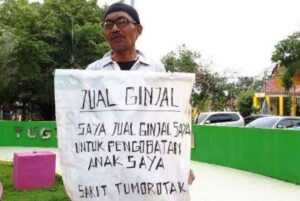 JUAL GINJAL
SAYA JUAL GINJAL SAYA
UNTUK PENGOBATAN
ANAK SAYA
SAKIT TUMOROTAK
TUG